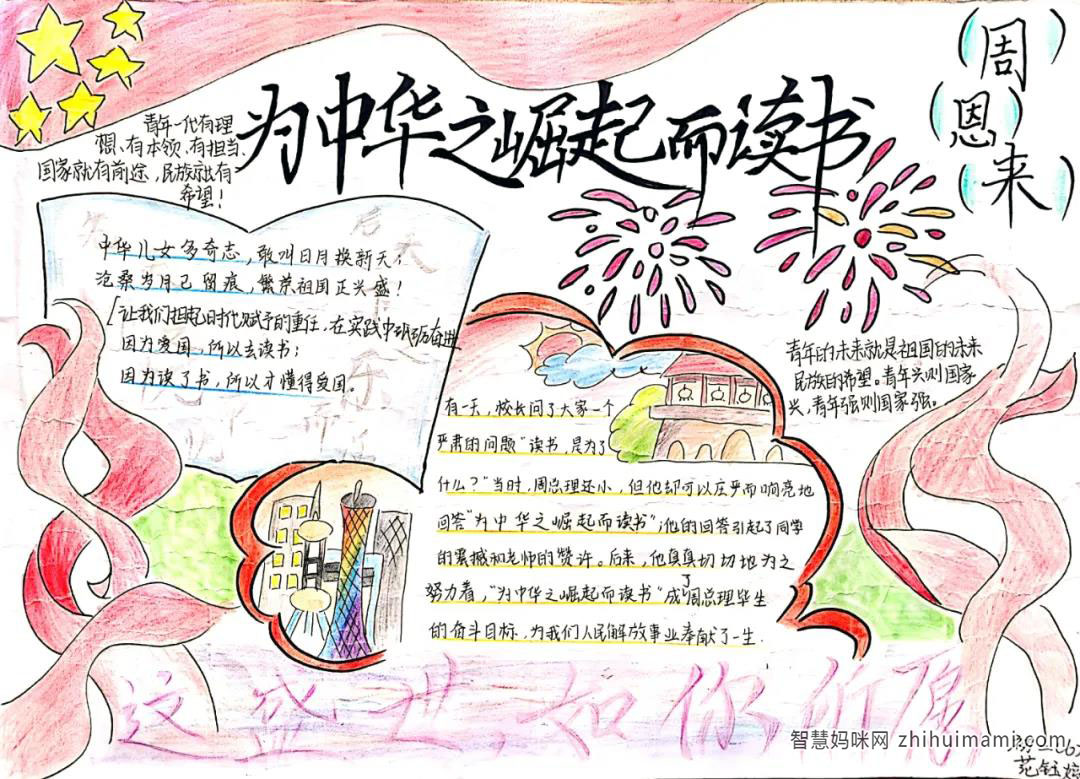 为中华之崛起而读书
周
恩
来
青年一代有理
想、有本领、有担当、
国家就有前途，民族就有
希望！
中华儿女多奇志，敢叫日月换新天；
沧桑岁月已留痕，繁荣祖国正兴盛！
让我们担起时代赋予的重任，在实践中砥砺奋进
因为爱国，所以去读书；
因为读了书，所以才懂得爱国。
有一天，校长问了大家一个
严肃的问题“读书，是为了
什么？”当时，周总理还小，但他却可以庄严而响亮地
回答“为中华之崛起而读书”；他的回答引起了同学
的震撼和老师的赞许。后来，他真真切切地为之
努力着，“为中华之崛起而读书”成了周总理毕生
的奋斗目标，为我们人民解放事业奉献了一生.
青年的未来就是祖国的未来
民族的希望。青年兴则国家
兴，青年强则国家强。
这盛世，如你所愿
智慧妈咪网 zhihuimami.com